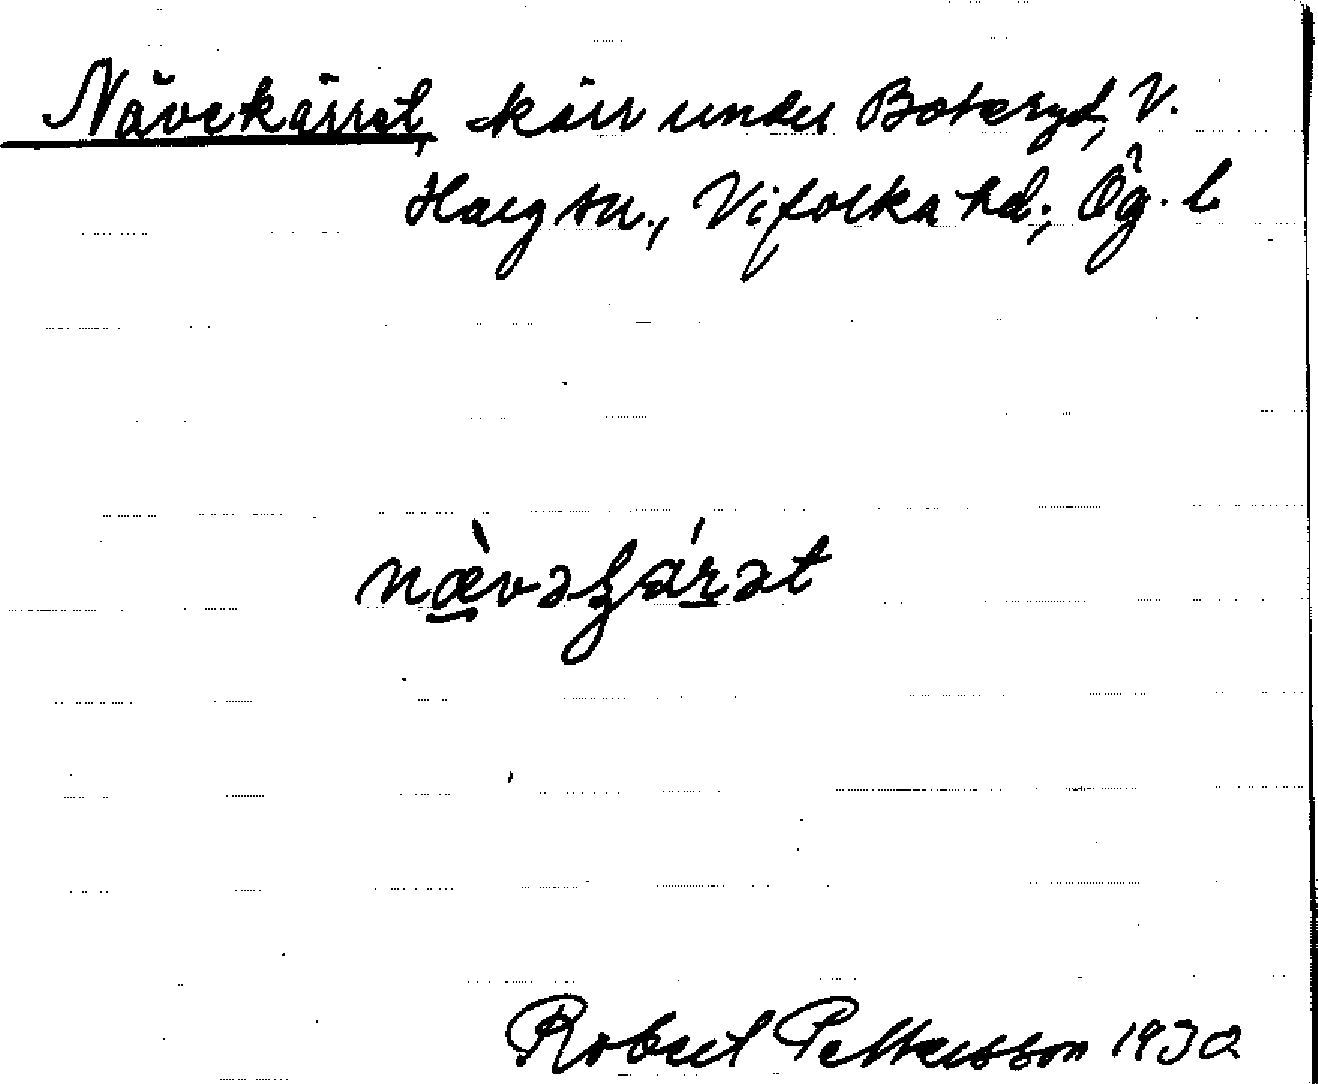 Nävekärret, kärr under Boteryd, V.
Harg sn., Vifolka hd., Ög. l.
Robert Pettersson 1930